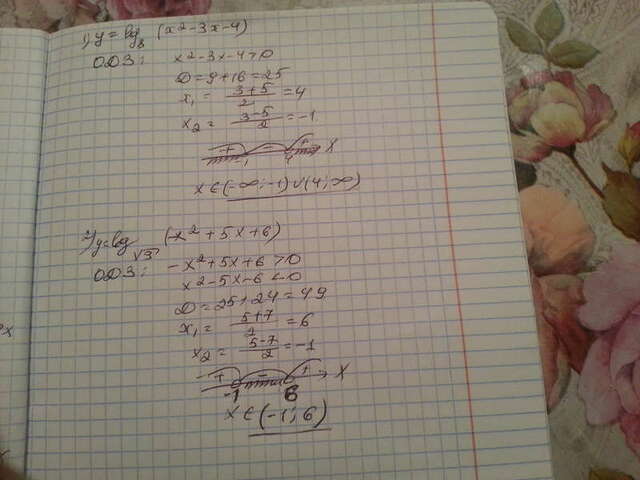 1) y = log₈ (x² - 3x - 4)
ОДЗ: x² - 3x - 4 > 0
D = 9 + 16 = 25
x₁ = (3+5)/2 = 4
x₂ = (3-5)/2 = -1
+ - + x
-1 4
x ∈ (-∞; -1) ∪ (4; ∞)
2) y = log√3 (x² + 5x + 6)
ОДЗ: -x² + 5x + 6 > 0
x² - 5x - 6 < 0
D = 25 + 24 = 49
x₁ = (5+7)/2 = 6
x₂ = (5-7)/2 = -1
+ - + x
-1 6
x ∈ (-1; 6)